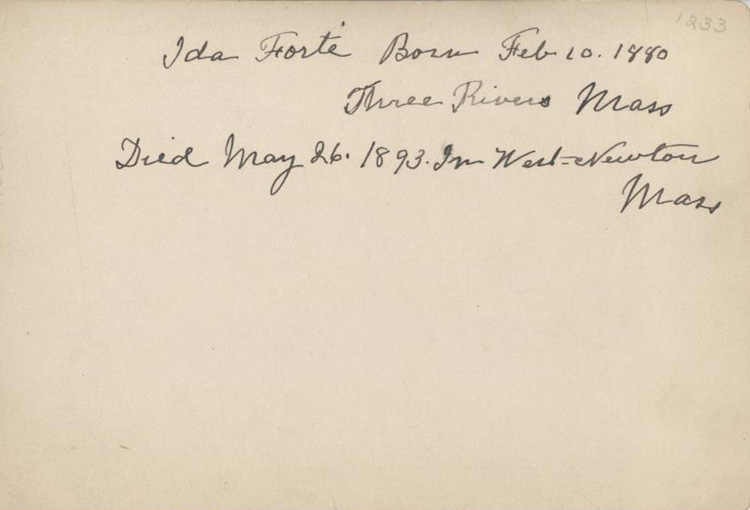 1233
Ida Forté Born Feb 10. 1880
Three Rivers Mass
Died May 26. 1893. In West-Newton
Mass